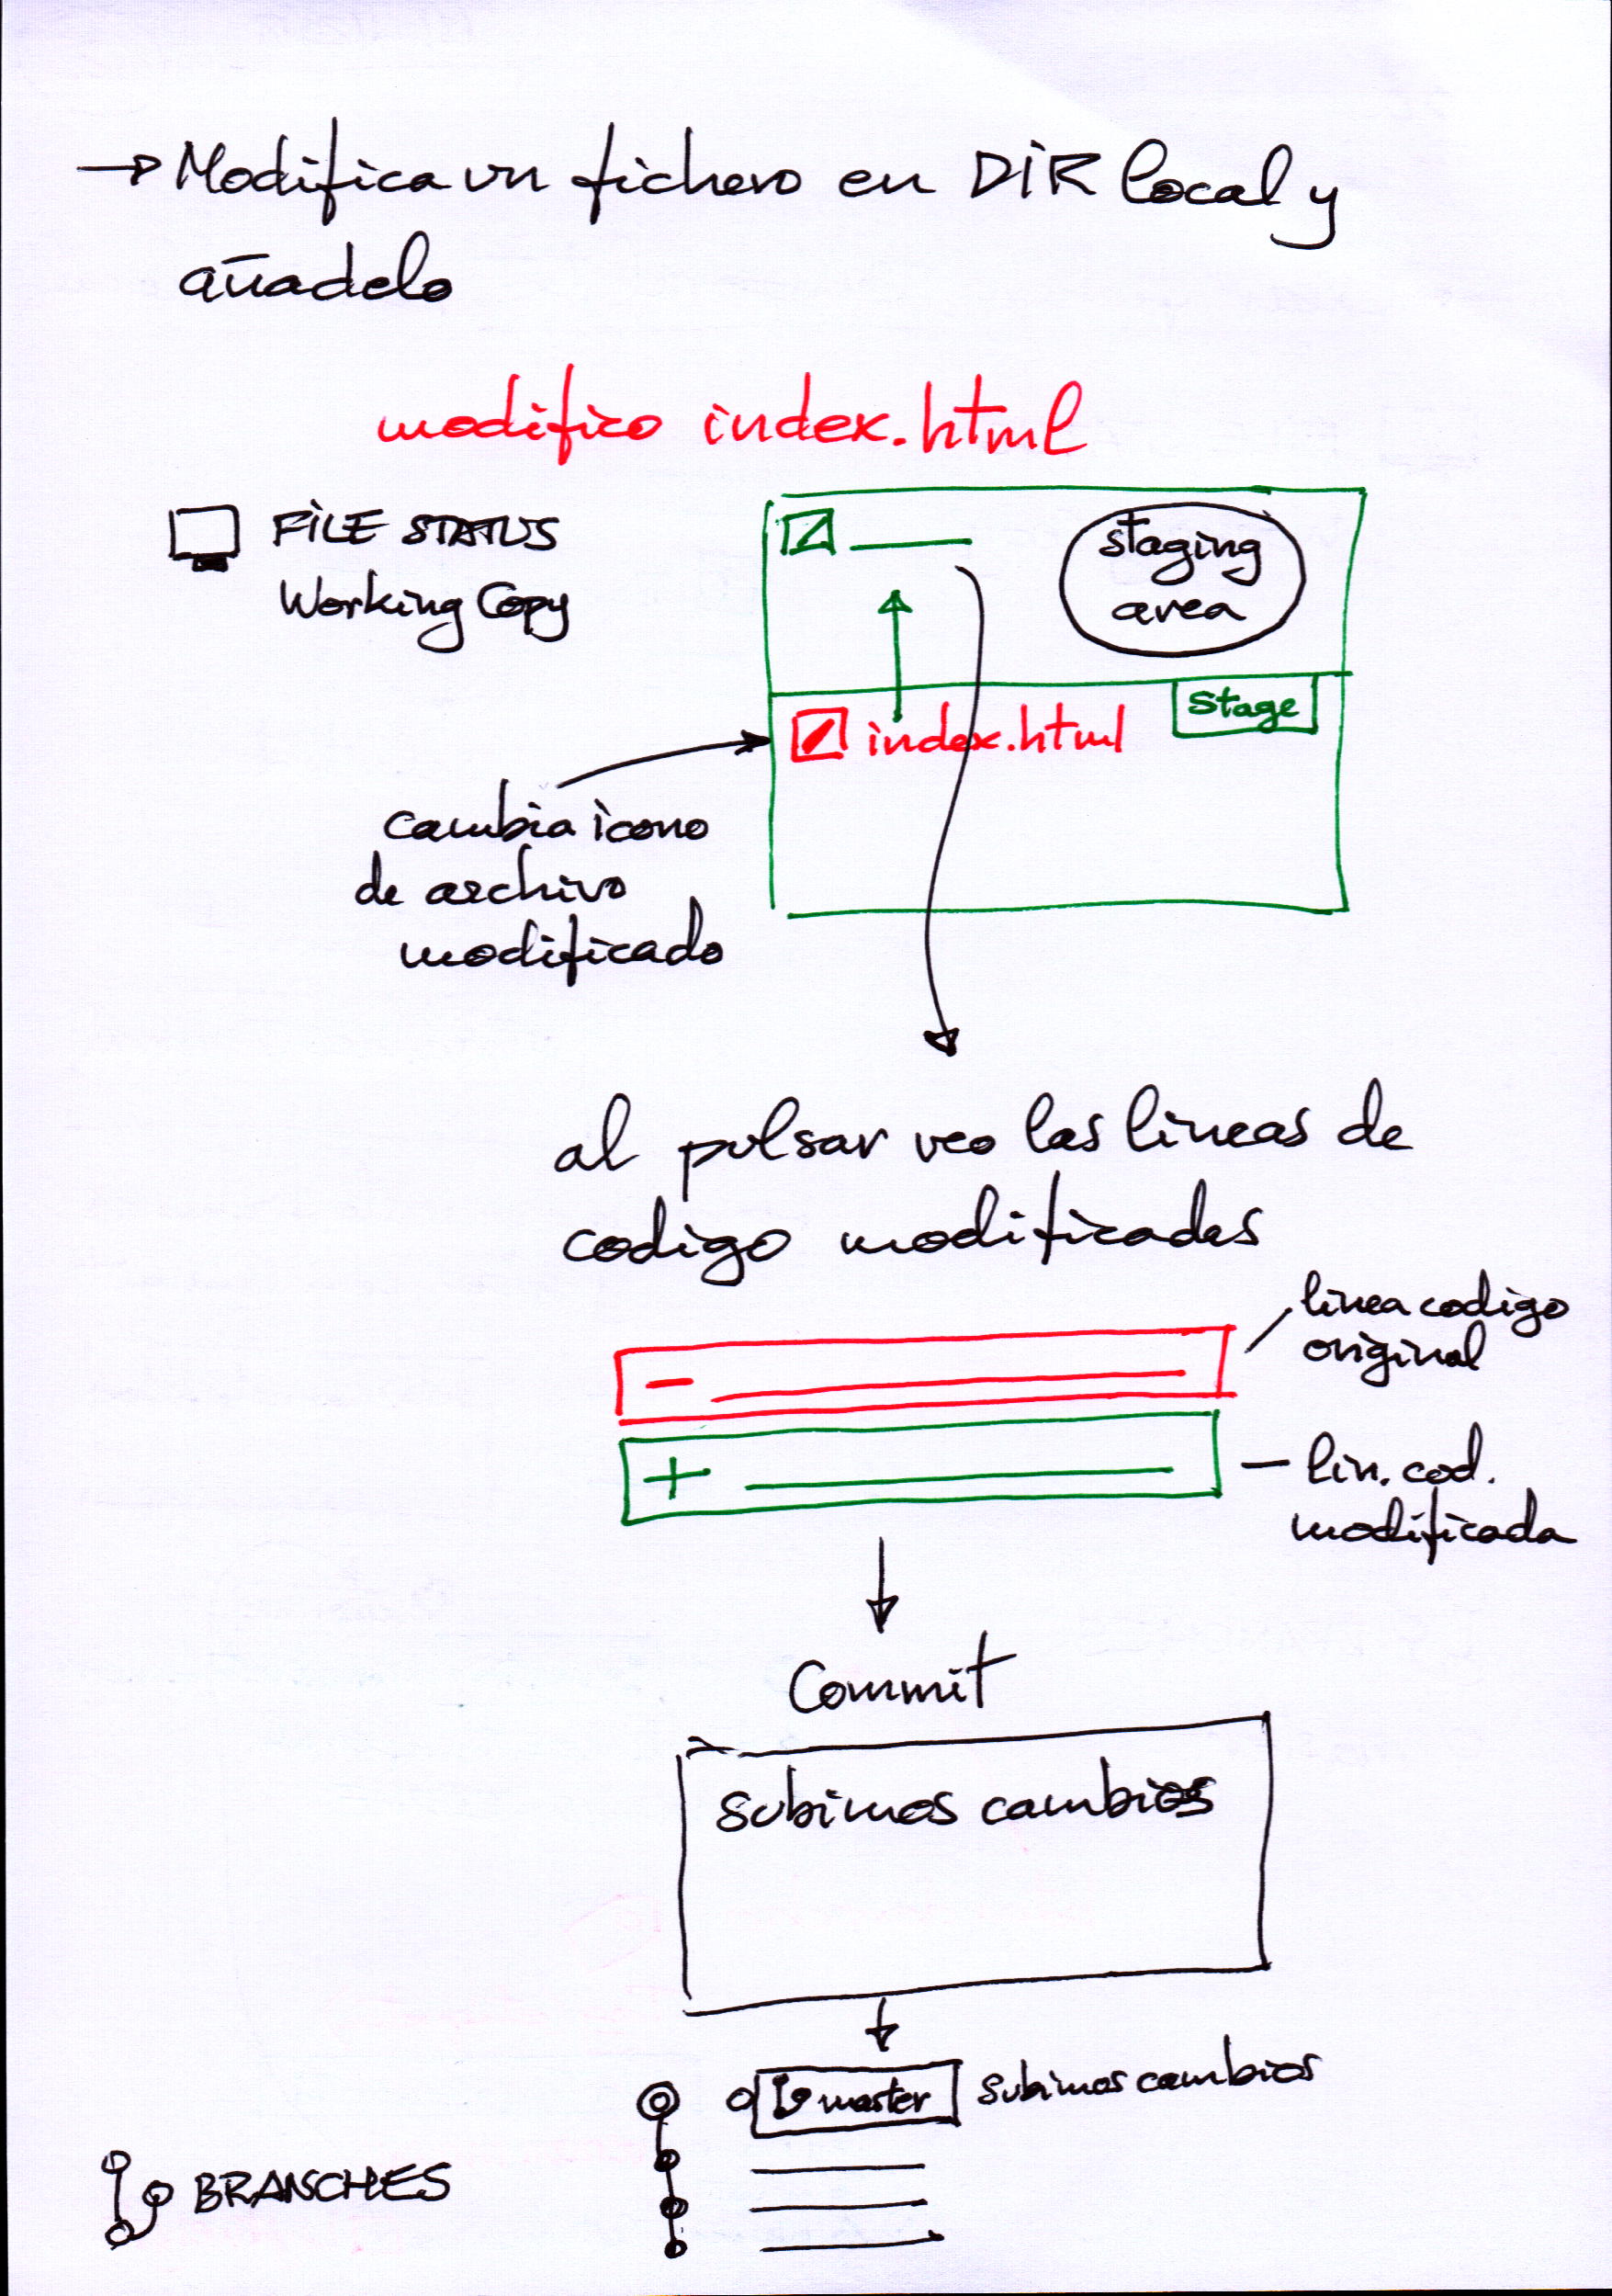 Modifica un fichero en DIR local y
añadelo
modifico index.html
FILE STATUS
Working Copy
staging
area
Stage
index.html
cambia icono
de archivo
modificado
al pulsar veo las lineas de
codigo modificadas
linea codigo
original
−
+
lin. cod.
modificada
Commit
subimos cambios
master subimos cambios
BRANSCHES